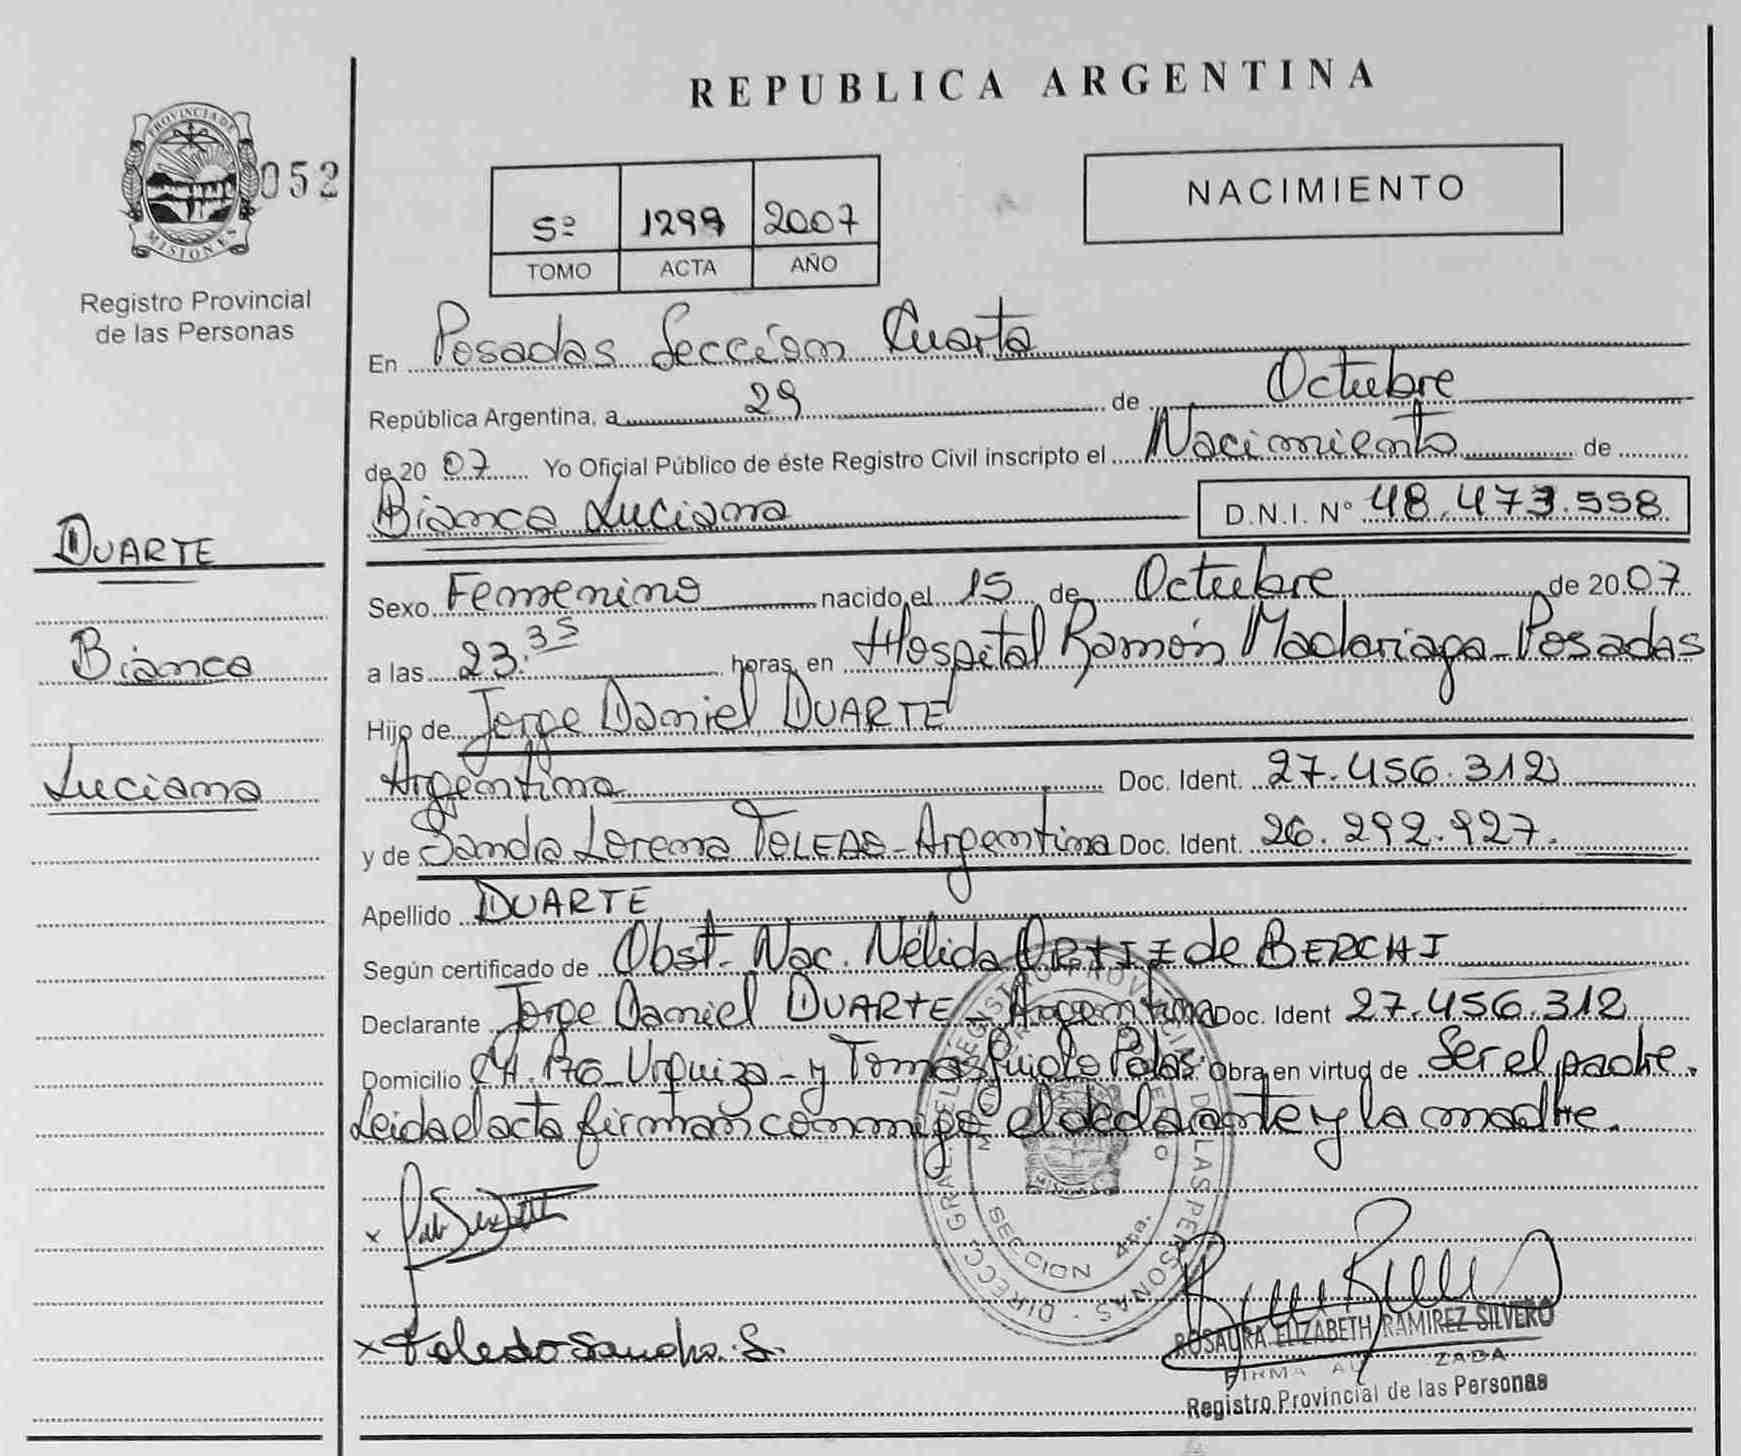 REPUBLICA ARGENTINA
PROVINCIA DE
MISIONES
052
Registro Provincial
de las Personas
5º 1299 2007
TOMO ACTA AÑO
NACIMIENTO
En Posadas Sección Cuarta
República Argentina, a 29 de Octubre
de 20 07 Yo Oficial Público de éste Registro Civil inscripto el Nacimiento de
Bianca Luciana D.N.I. Nº 48.473.558
DUARTE
Bianca
Luciana
Sexo Femenino nacido el 15 de Octubre de 20 07
a las 23.35 horas, en Hospital Ramón Madariaga - Posadas
Hijo de Jorge Daniel DUARTE
Argentino Doc. Ident. 27.456.312
y de Sandra Lorena TOLEDO - Argentina Doc. Ident. 26.292.927.
Apellido DUARTE
Según certificado de Obst. Nac. Nélida ORTIZ de BERCHI
Declarante Jorge Daniel DUARTE - Argentino Doc. Ident 27.456.312
Domicilio CH. 176 Urquiza - y Tomas Guido Pdas. Obra en virtud de Ser el padre.
Leida el acta firman conmigo el declarante y la madre.
DIRECC. GRAL. DEL REGISTRO PROVINCIAL DE LAS PERSONAS
SECCION 4ta.
x
x Toledo Sandra. L.
ROSAURA ELIZABETH RAMIREZ SILVERO
FIRMA AU ZADA
Registro Provincial de las Personas